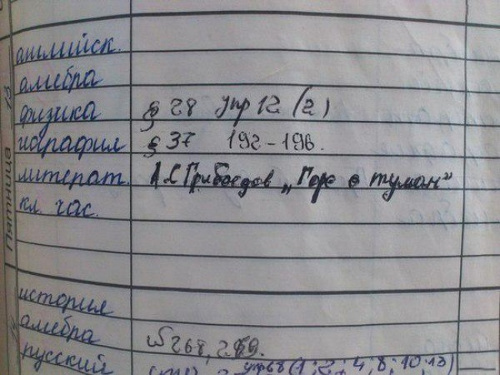 английск.
алгебра
физика § 28 упр 12 (2)
география § 37 192-196.
литерат. А.С Грибоедов „Горе о туман"
кл. час.
Пятница
история
алгебра №268, 269.
русский упр68(1; 2; 4, 8; 10; 13)